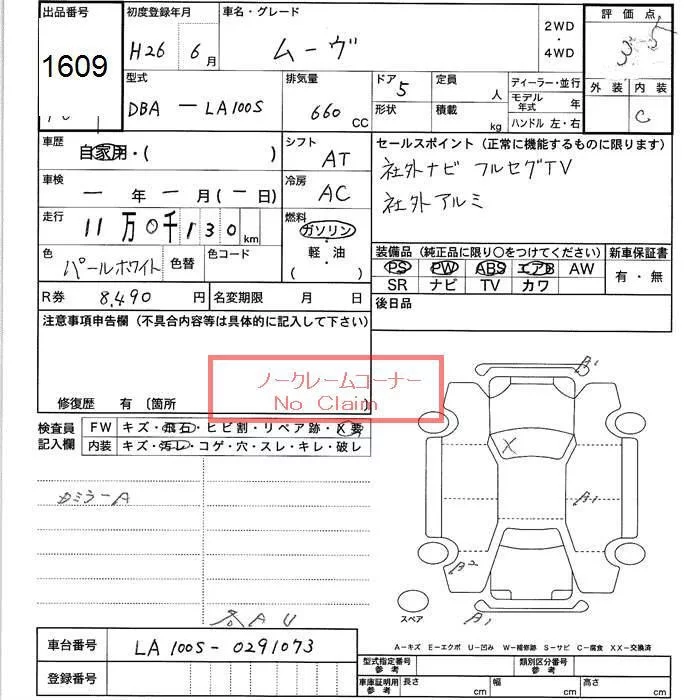 出品番号
1609
初度登録年月
H26 6月
車名・グレード
ムーヴ
2WD
・
4WD
評価点
3.5
外装 内装
C
型式
DBA - LA100S
排気量
660 CC
ドア 5
形状
定員 人
積載 kg
ディーラー・並行
モデル年式 年
ハンドル 左・右
車歴
自家用・( )
シフト
AT
車検
一年一月(一日)
冷房
AC
走行
11万0千130km
燃料
ガソリン
・
軽・油
( )
色
パールホワイト
色替
色コード
R券 8,490 円
名変期限 月 日
セールスポイント (正常に機能するものに限ります)
社外ナビ フルセグTV
社外アルミ
装備品 (純正品に限り○をつけてください)
PS PW ABS エアB AW
SR ナビ TV カワ
新車保証書
有・無
後日品
注意事項申告欄 (不具合内容等は具体的に記入して下さい)
ノークレームコーナー
No Claim
修復歴 有 〔箇所
検査員
記入欄
FW キズ・飛石・ヒビ割・リペア跡・X要
内装 キズ・汚レ・コゲ・穴・スレ・キレ・破レ
カミラーA
各AU
A1
X
A1
A2
A1
スペア
A-キズ E-エクボ U-凹み W-補修跡 S-サビ C-腐食 XX-交換済
車台番号 LA100S-0291073
登録番号
型式指定番号 参考
類別区分番号 参考
車庫証明用 参考 長さ cm 幅 cm 高さ cm